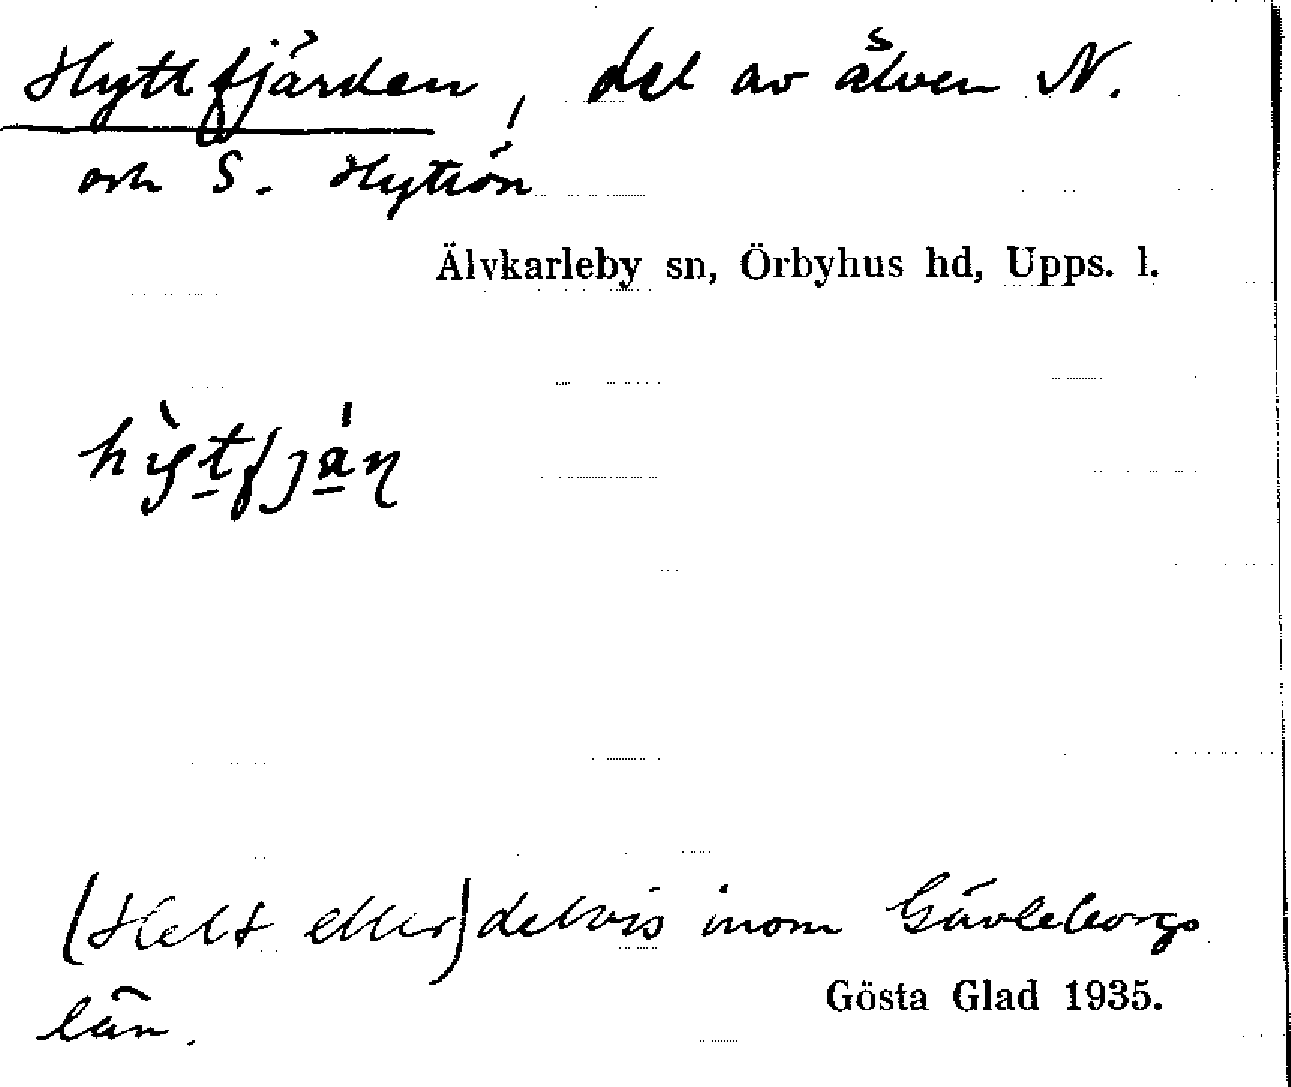 Hyttfjärden, del av älven N.
och S. Hyttön
Älvkarleby sn, Örbyhus hd, Upps. l.
hy̆tfjän
(Helt eller) delvis inom Gävleborgs
Gösta Glad 1935.
län.